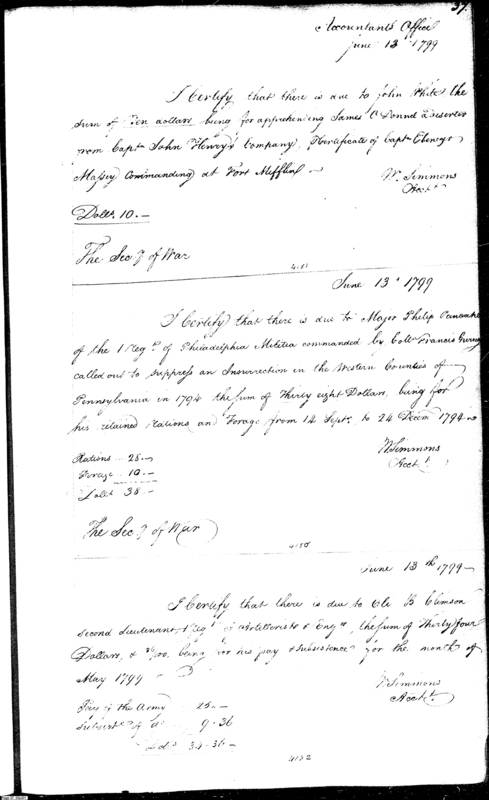 37.
Accountants Office
June 13th 1799
I Certify that there is due to John White the
Sum of Ten dollars being for apprehending James O Donnel a Deserter
from Captn John Henry's Company, Certificate of Captn
Massey Commanding at Fort Mifflin
W. Simmons
Acctt
Dolls. 10.—
The Secy of War
June 13th 1799
I Certify that there is due to Major Philip
of the 1 Regt of Philadelphia Militia commanded by Colo Francis Gurney
called out to suppress an Insurrection in the Western Counties of
Pennsylvania in 1794 the sum of Thirty eight Dollars, being for
his retained Rations and Forage from 14 Septr to 24 Decem 1794
W Simmons
Acctt
Rations .. 28.—
Forage .. 10.—
Dolls 38 —
The Secy of War
June 13th 1799—
I Certify that there is due to Eli B Climson
Second Lieutenant, 1 Regt of Artillerists & Engrs, the sum of Thirty four
Dollars, & 36/100, being for his pay & subsistence for the month of
May 1799
W Simmons
Acctt
Pay of the Army 25.—
Subsistce of do 9.36
Dolls 34.36—
4122